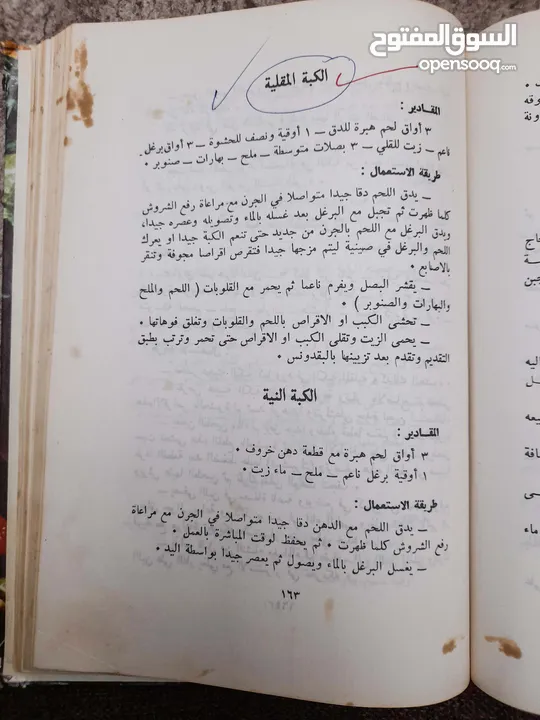 السوق المفتوح
opensooq.com
الكبة المقلية
المقادير :
٣ أواق لحم هبرة للدق ــ ١ أوقية ونصف للحشوة ــ ٣ أواق برغل
ناعم ــ زيت للقلي ــ ٣ بصلات متوسطة ــ ملح ــ بهارات ــ صنوبر •
طريقة الاستعمال :
ــ يدق اللحم دقا جيدا متواصلا في الجرن مع مراعاة رفع الشروش
كلما ظهرت ثم تجبل مع البرغل بعد غسله بالماء وتصويله وعصره جيدا،
ويدق البرغل مع اللحم بالجرن من جديد حتى تنعم الكبة جيدا او يعرك
اللحم والبرغل في صينية ليتم مزجها جيدا فتقرص اقراصا مجوفة وتنقر
بالاصابع •
ــ يقشر البصل ويفرم ناعما ثم يحمر مع القلوبات ( اللحم والملح
والبهارات والصنوبر ) •
ــ تحشى الكبب او الاقراص باللحم والقلوبات وتغلق فوهاتها •
ــ يحمى الزيت وتقلى الكبب او الاقراص حتى تحمر وترتب بطبق
التقديم وتقدم بعد تزيينها بالبقدونس •
الكبة النية
المقادير :
٣ أواق لحم هبرة مع قطعة دهن خروف •
١ أوقية برغل ناعم ــ ملح ــ ماء زيت •
طريقة الاستعمال :
ــ يدق اللحم مع الدهن دقا جيدا متواصلا في الجرن مع مراعاة
رفع الشروش كلما ظهرت • ثم يحفظ لوقت المباشرة بالعمل •
ــ يغسل البرغل بالماء ويصول ثم يعصر جيدا بواسطة اليد •
١٦٣